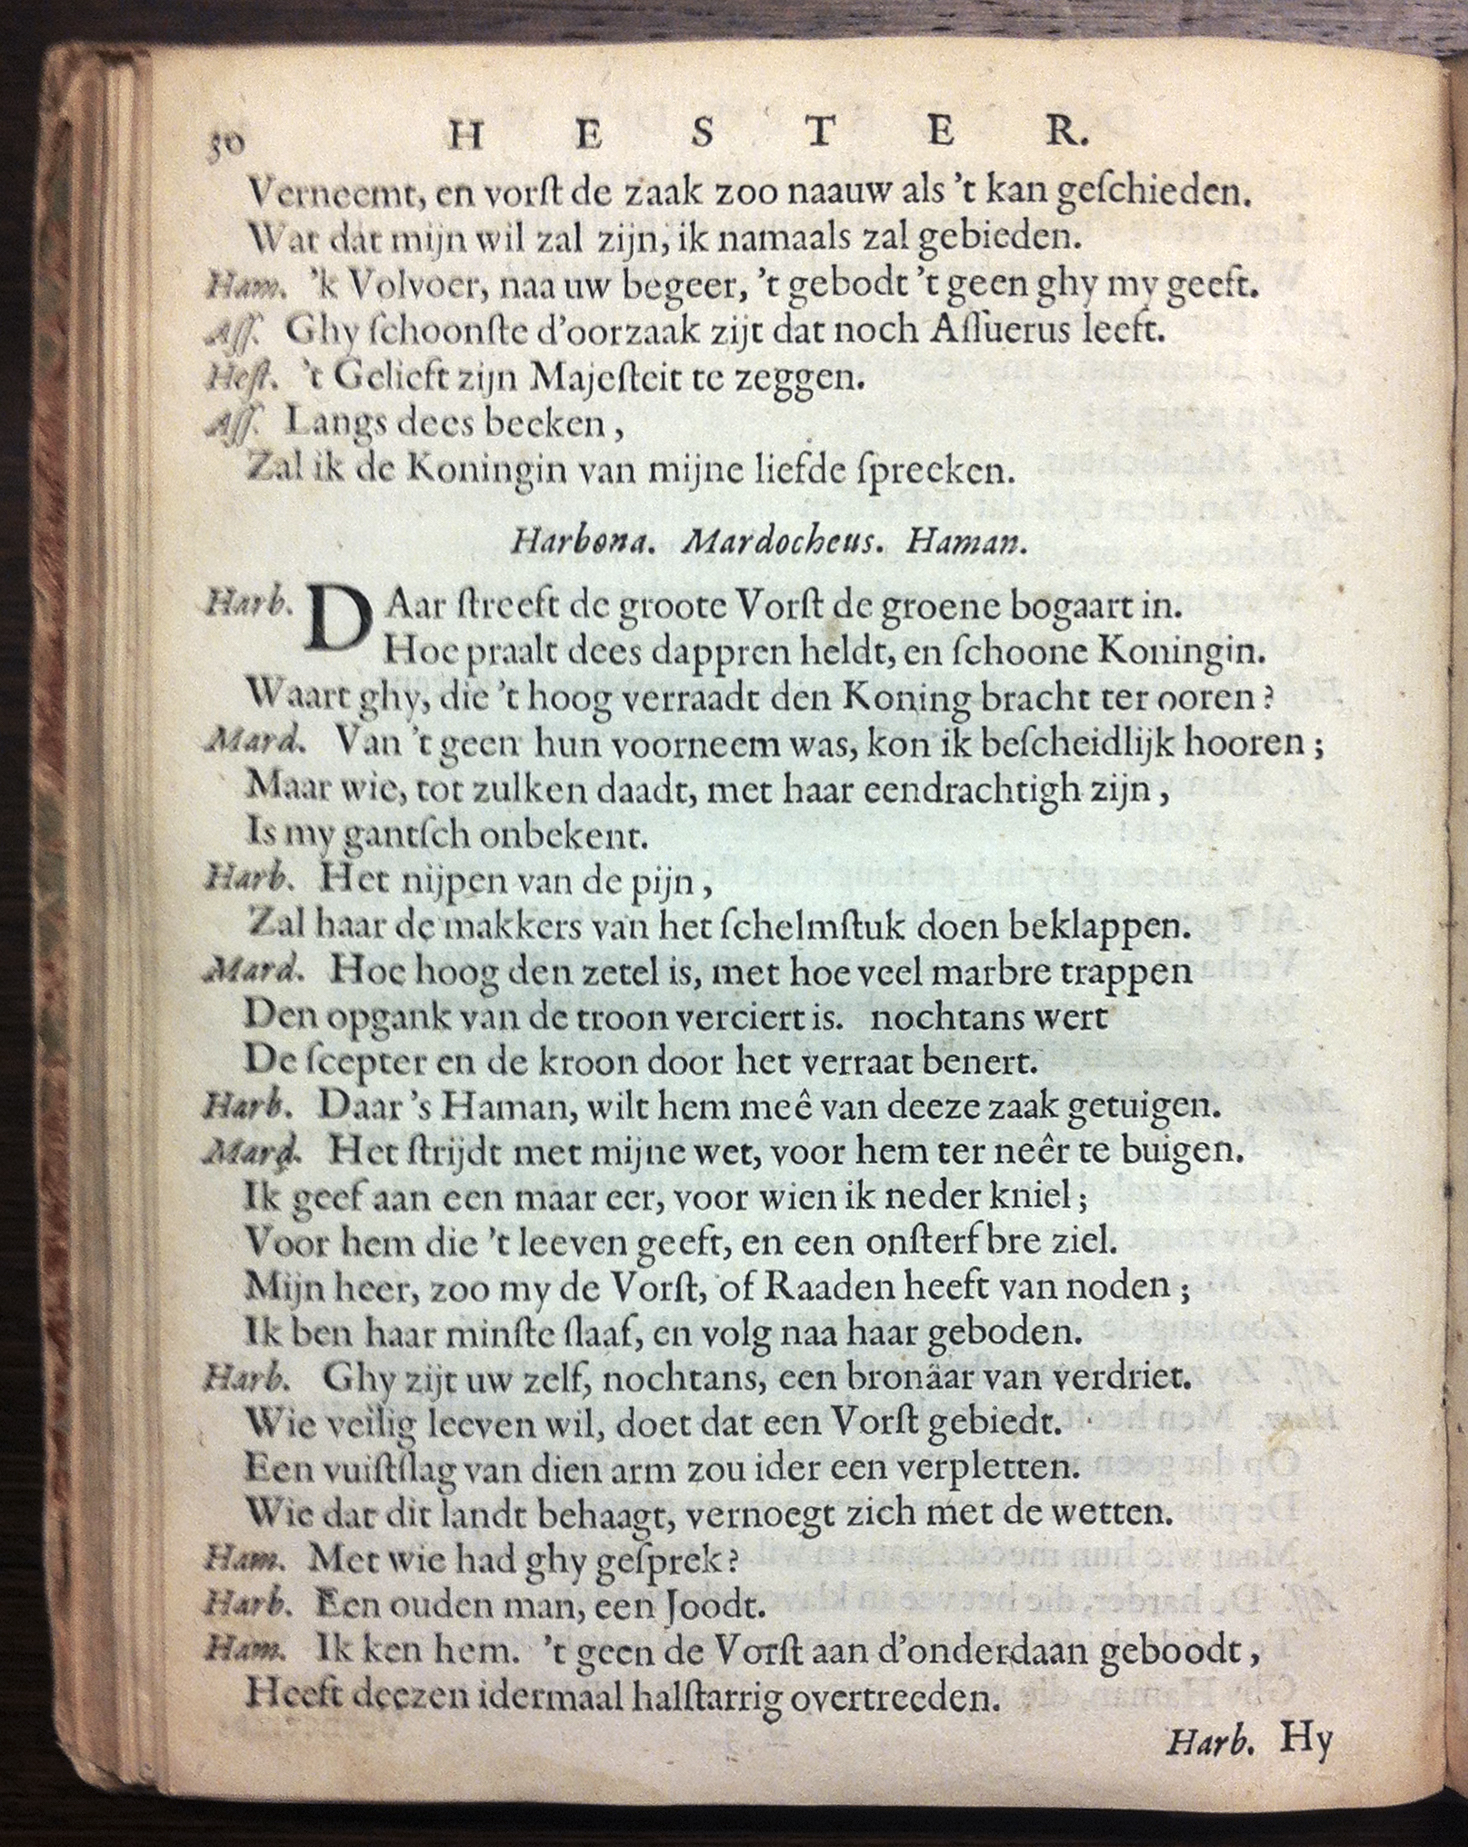 30 H E S T E R.
Verneemt, en vorſt de zaak zoo naauw als 't kan geſchieden.
Wat dat mijn wil zal zijn, ik namaals zal gebieden.
Ham. 'k Volvoer, naa uw begeer, 't gebodt 't geen ghy my geeft.
Aſſ. Ghy ſchoonſte d'oorzaak zijt dat noch Aſſuerus leeft.
Heſt. 't Gelieft zijn Majeſteit te zeggen.
Aſſ. Langs dees beeken,
Zal ik de Koningin van mijne liefde ſpreeken.
Harbona. Mardocheus. Haman.
Harb. DAar ſtreeft de groote Vorſt de groene bogaart in.
Hoe praalt dees dappren heldt, en ſchoone Koningin.
Waart ghy, die 't hoog verraadt den Koning bracht ter ooren?
Mard. Van 't geen hun voorneem was, kon ik beſcheidlijk hooren;
Maar wie, tot zulken daadt, met haar eendrachtigh zijn,
Is my gantſch onbekent.
Harb. Het nijpen van de pijn,
Zal haar de makkers van het ſchelmſtuk doen beklappen.
Mard. Hoe hoog den zetel is, met hoe veel marbre trappen
Den opgank van de troon verciert is. nochtans wert
De ſcepter en de kroon door het verraat benert.
Harb. Daar 's Haman, wilt hem meê van deeze zaak getuigen.
Mard. Het ſtrijdt met mijne wet, voor hem ter neêr te buigen.
Ik geef aan een maar eer, voor wien ik neder kniel;
Voor hem die 't leeven geeft, en een onſterfbre ziel.
Mijn heer, zoo my de Vorſt, of Raaden heeft van noden;
Ik ben haar minſte ſlaaf, en volg naa haar geboden.
Harb. Ghy zijt uw zelf, nochtans, een bronäar van verdriet.
Wie veilig leeven wil, doet dat een Vorſt gebiedt.
Een vuiſtſlag van dien arm zou ider een verpletten.
Wie dat dit landt behaagt, vernoegt zich met de wetten.
Ham. Met wie had ghy geſprek?
Harb. Een ouden man, een Joodt.
Ham. Ik ken hem. 't geen de Vorſt aan d'onderdaan geboodt,
Heeft deezen idermaal halſtarrig overtreeden.
Harb. Hy